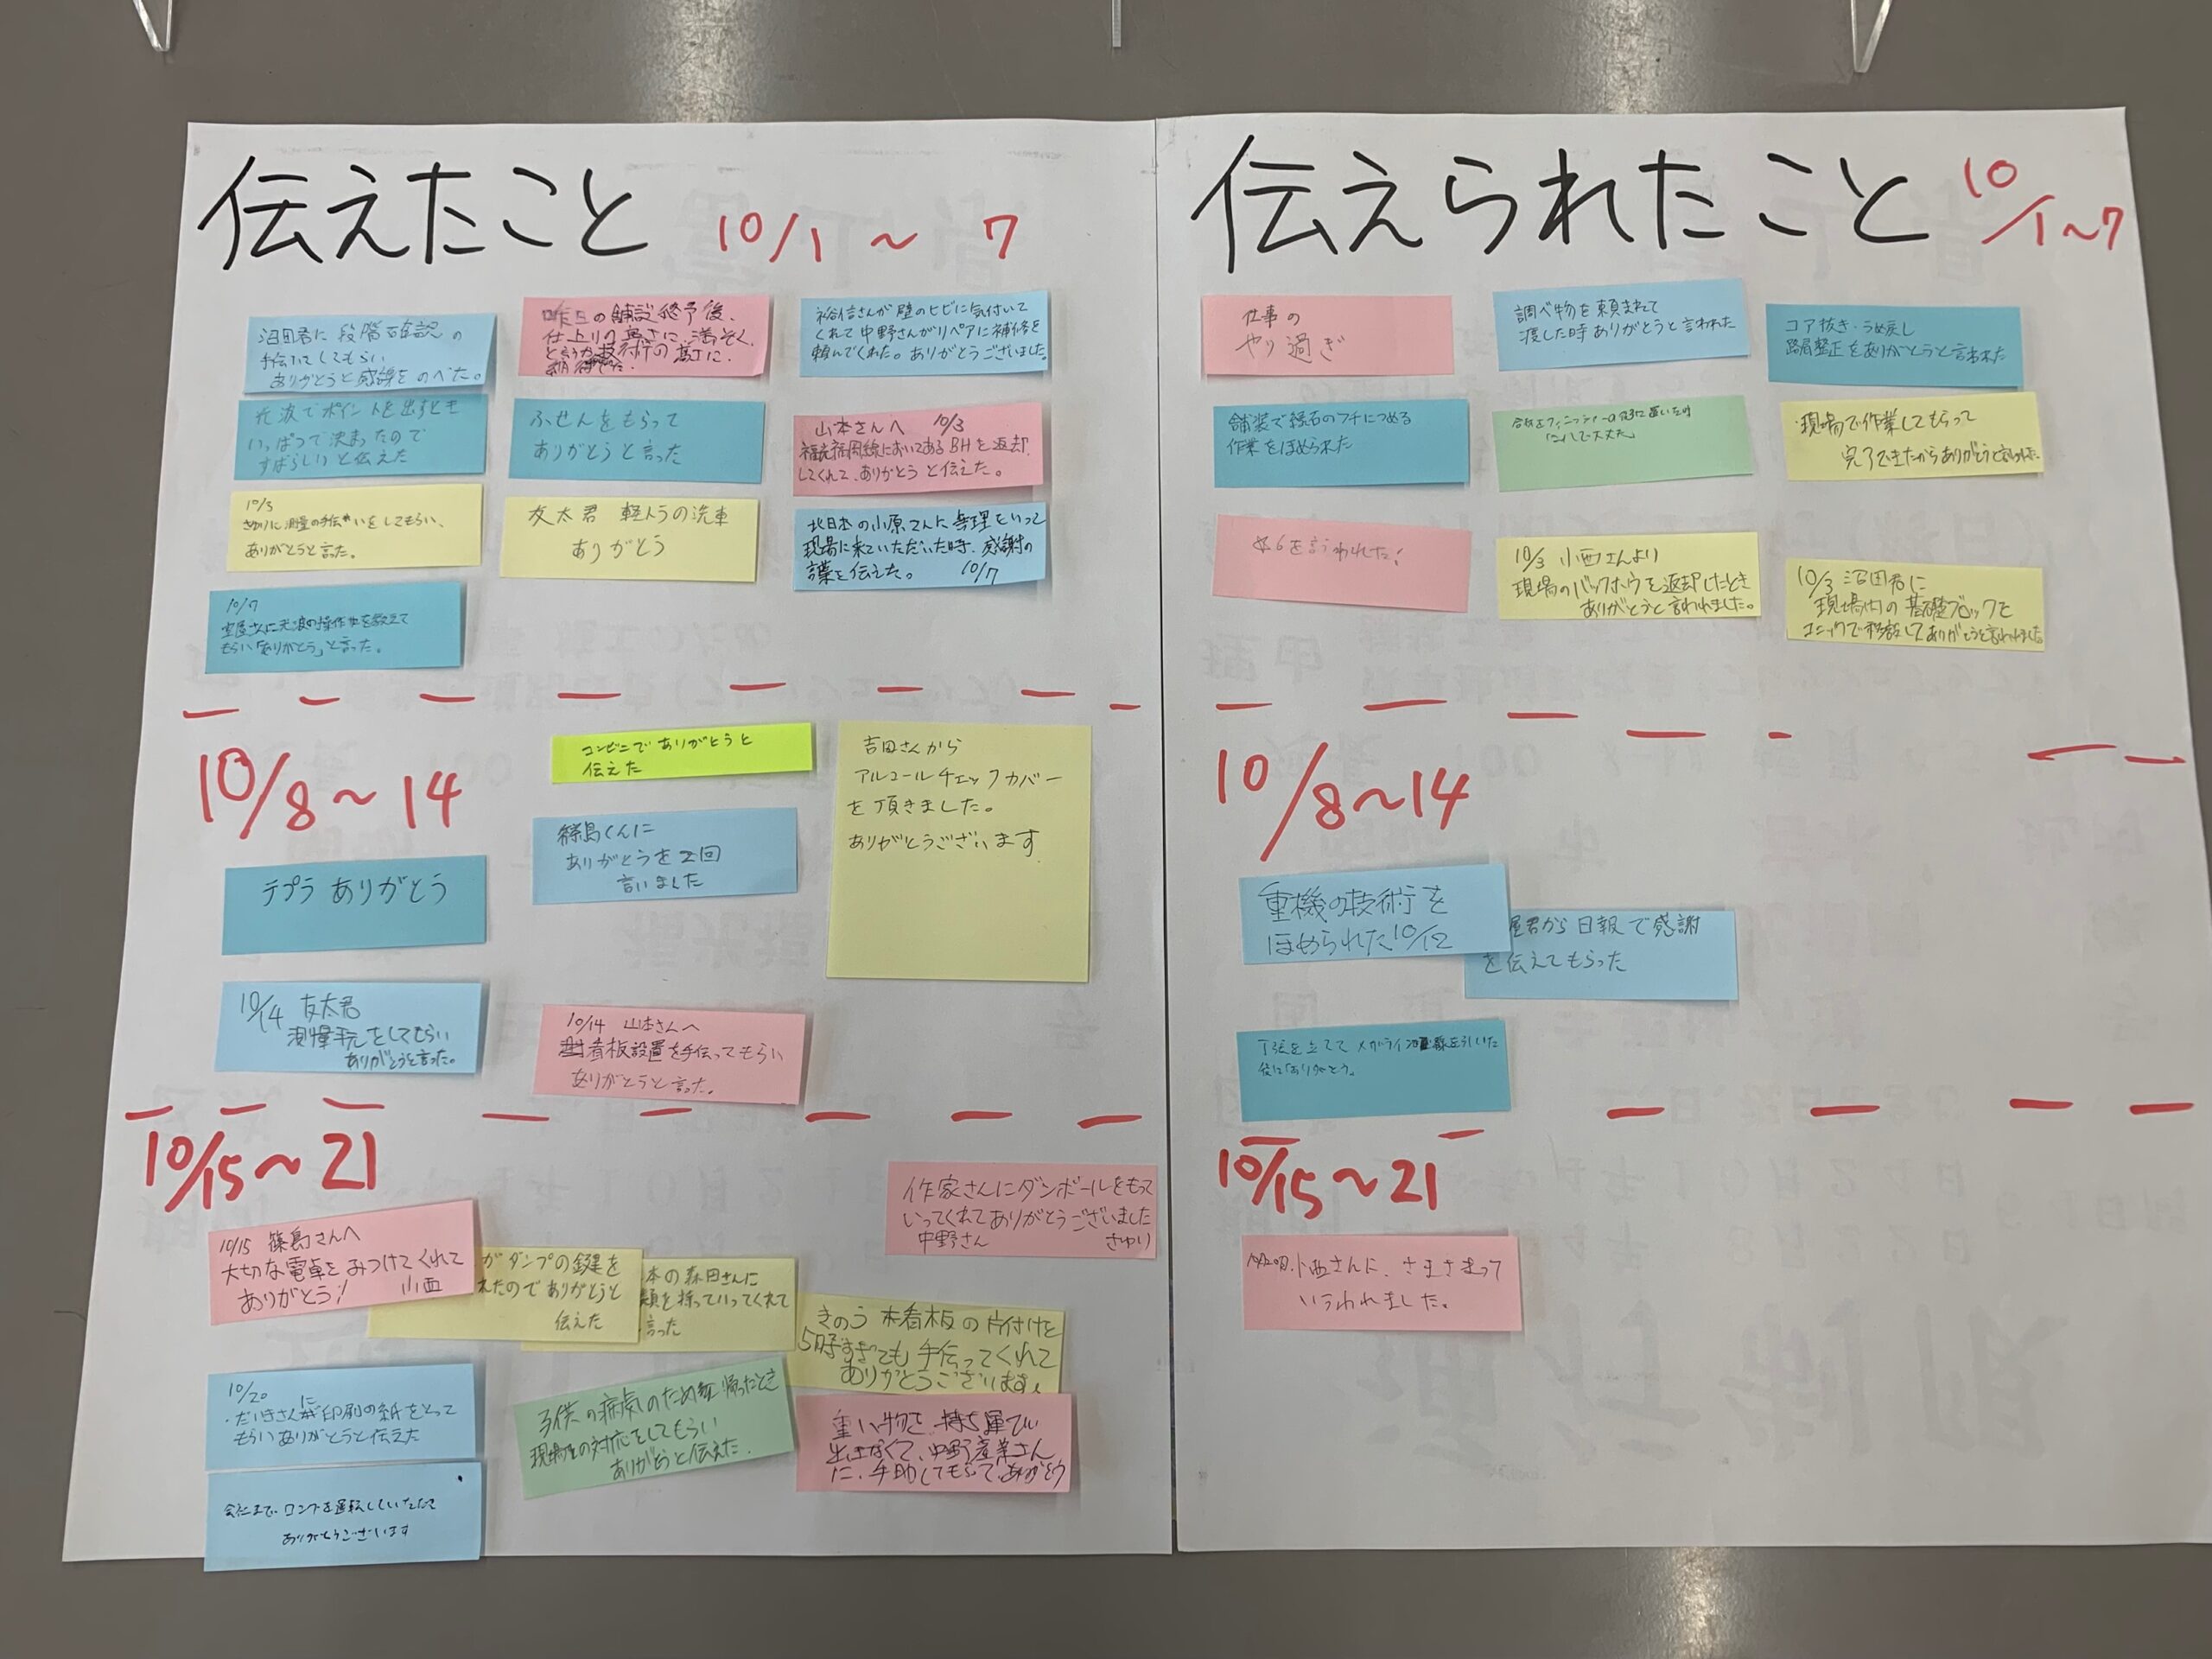 伝えたこと 10/1 ~ 7
沼田君に 段階確認 の
手伝いてしてもらい
ありがとうと感謝を のべた。
昨日の舗設終予後、
仕上りの高さに、満ぞく。
裕信さんが 壁のヒビに気付いて
くれて 中野さんがリペアに補修を
頼んでくれた。ありがとうございました。
光波でポイントを出すとき
いっぱつで決まったので
すばらしいと伝えた
ふせんをもらって
ありがとうと言った
山本さんへ 10/3
福光福岡線においてあるBHを返却
してくれて、ありがとうと伝えた。
10/3
さゆりに測量の手伝いをしてもらい、
ありがとうと言った。
友太君 軽トラの洗車
ありがとう
北日本の小原さんに無理をいって
現場に来ていただいた時、感謝の
言葉を伝えた。 10/7
10/7
光波の操作を教えて
もらい「ありがとう」と言った。
10/8~14
コンビニで ありがとうと
伝えた
吉田さんから
アルコールチェックカバー
を頂きました。
ありがとうございます
篠島くんに
ありがとうを2回
言いました
テプラ ありがとう
10/14 友太君
をしてもらい
ありがとうと言った。
10/14 山本さんへ
看板設置を手伝ってもらい
ありがとうと言った。
10/15~21
作家さんにダンボールをもって
いってくれてありがとうございました
中野さん さゆり
10/15 篠島さんへ
大切な電卓をみつけてくれて
ありがとう! 小西
がダンプの鍵を
えたのでありがとうと
伝えた
本の森田さんに
類を採っていってくれて
言った
きのう 本看板の片付けを
5時すぎても 手伝ってくれて
ありがとうございます。
10/20
・だいきさんに印刷の紙をとって
もらいありがとうと伝えた
子供の病気のため 帰ったとき
現場の対応をしてもらい
ありがとうと伝えた。
重い物を 持ち運び
出せなくて、中野産業さん
に、手助してもらって、ありがとう
会社まで ロンブを運転していただいて
ありがとうございます
伝えられたこと 10/1~7
仕事の
やり過ぎ
調べ物を頼まれて
渡した時 ありがとうと言われた
コア抜き・うめ戻し
路肩整正をありがとうと言われた
舗装で縁石のフチにつめる
作業をほめられた
・現場で作業してもらって
完了できたからありがとうと言われた
を言われた!
10/3 小西さんより
現場のバックホウを返却したとき
ありがとうと言われました。
10/3 沼田君に
現場内の基礎ブロックを
ユニックで移設してありがとうと言われました
10/8~14
重機の技術を
ほめられた 10/12
屋君から日報で感謝
を伝えてもらった
丁張を立てて メガライン
後に「ありがとう。
10/15~21
小西さんに、さまさまって
いうわれました。